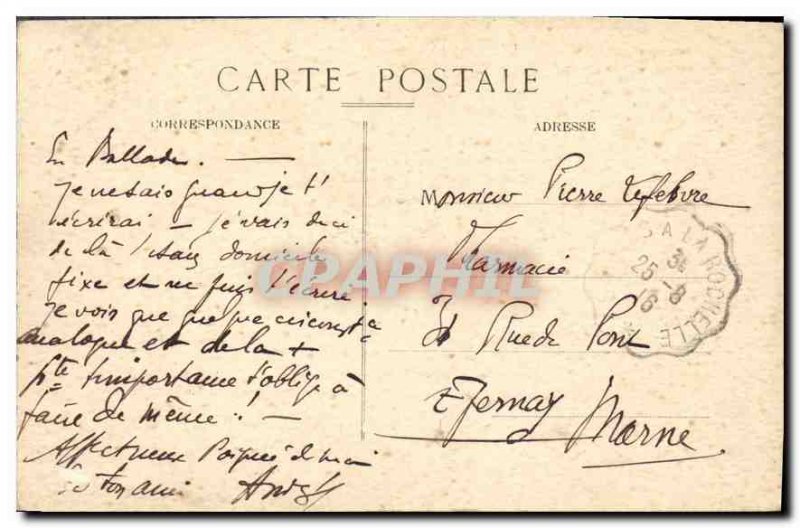 CARTE POSTALE
CORRESPONDANCE
ADRESSE
En Ballade. —
je ne sais quand je t'
écrirai — je vais deci
de là sans domicile
fixe et ne puis t'écrire
je vois que quelque circonst ce
analogue et de la +
pte importance t'oblige à
faire de même ! —
Affectueuse Poignée de main
de ton ami
Monsieur Pierre Lefebvre
Pharmacie
Rue de Pont
Epernay
Marne
A LA ROCHELLE
25 - 8
16
CPAPHIL